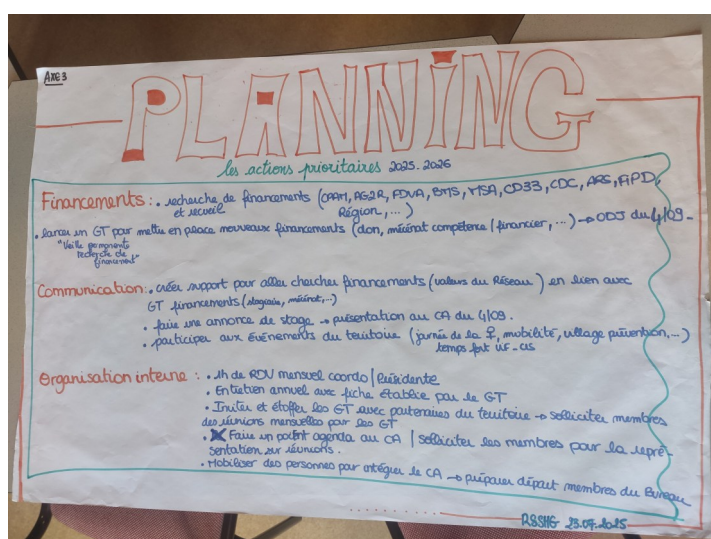 AXE 3
PLANNING
les actions prioritaires 2025-2026
Financements : • recherche de financements (CPAM, AG2R, FDVA, BMS, MSA, CD33, CDC, ARS, FIPD,
et recueil Région, ...)
• lancer un GT pour mettre en place nouveaux financements (don, mécénat compétence / financier, ...) → ODJ du 4/09 -
"Veille permanente
recherche de
financement"
Communication : • créer support pour aller chercher financements (valeurs du Réseau) en lien avec
GT financements (stagiaire, mécénat, ...)
• faire une annonce de stage → présentation au CA du 4/09.
• participer aux événements du territoire (journée de la ♀, mobilité, village prévention, ...)
temps fort
Organisation interne : • 1h de RDV mensuel coordo / Présidente
• Entretien annuel avec fiche établie par le GT
• Inviter et étoffer les GT avec partenaires du territoire → solliciter membres
des réunions mensuelles pour les GT
• Faire un point agenda au CA / solliciter les membres pour la repré-
sentation sur réunions.
• Mobiliser des personnes pour intégrer le CA → préparer départ membres du Bureau
RSSHG 23.07.2025